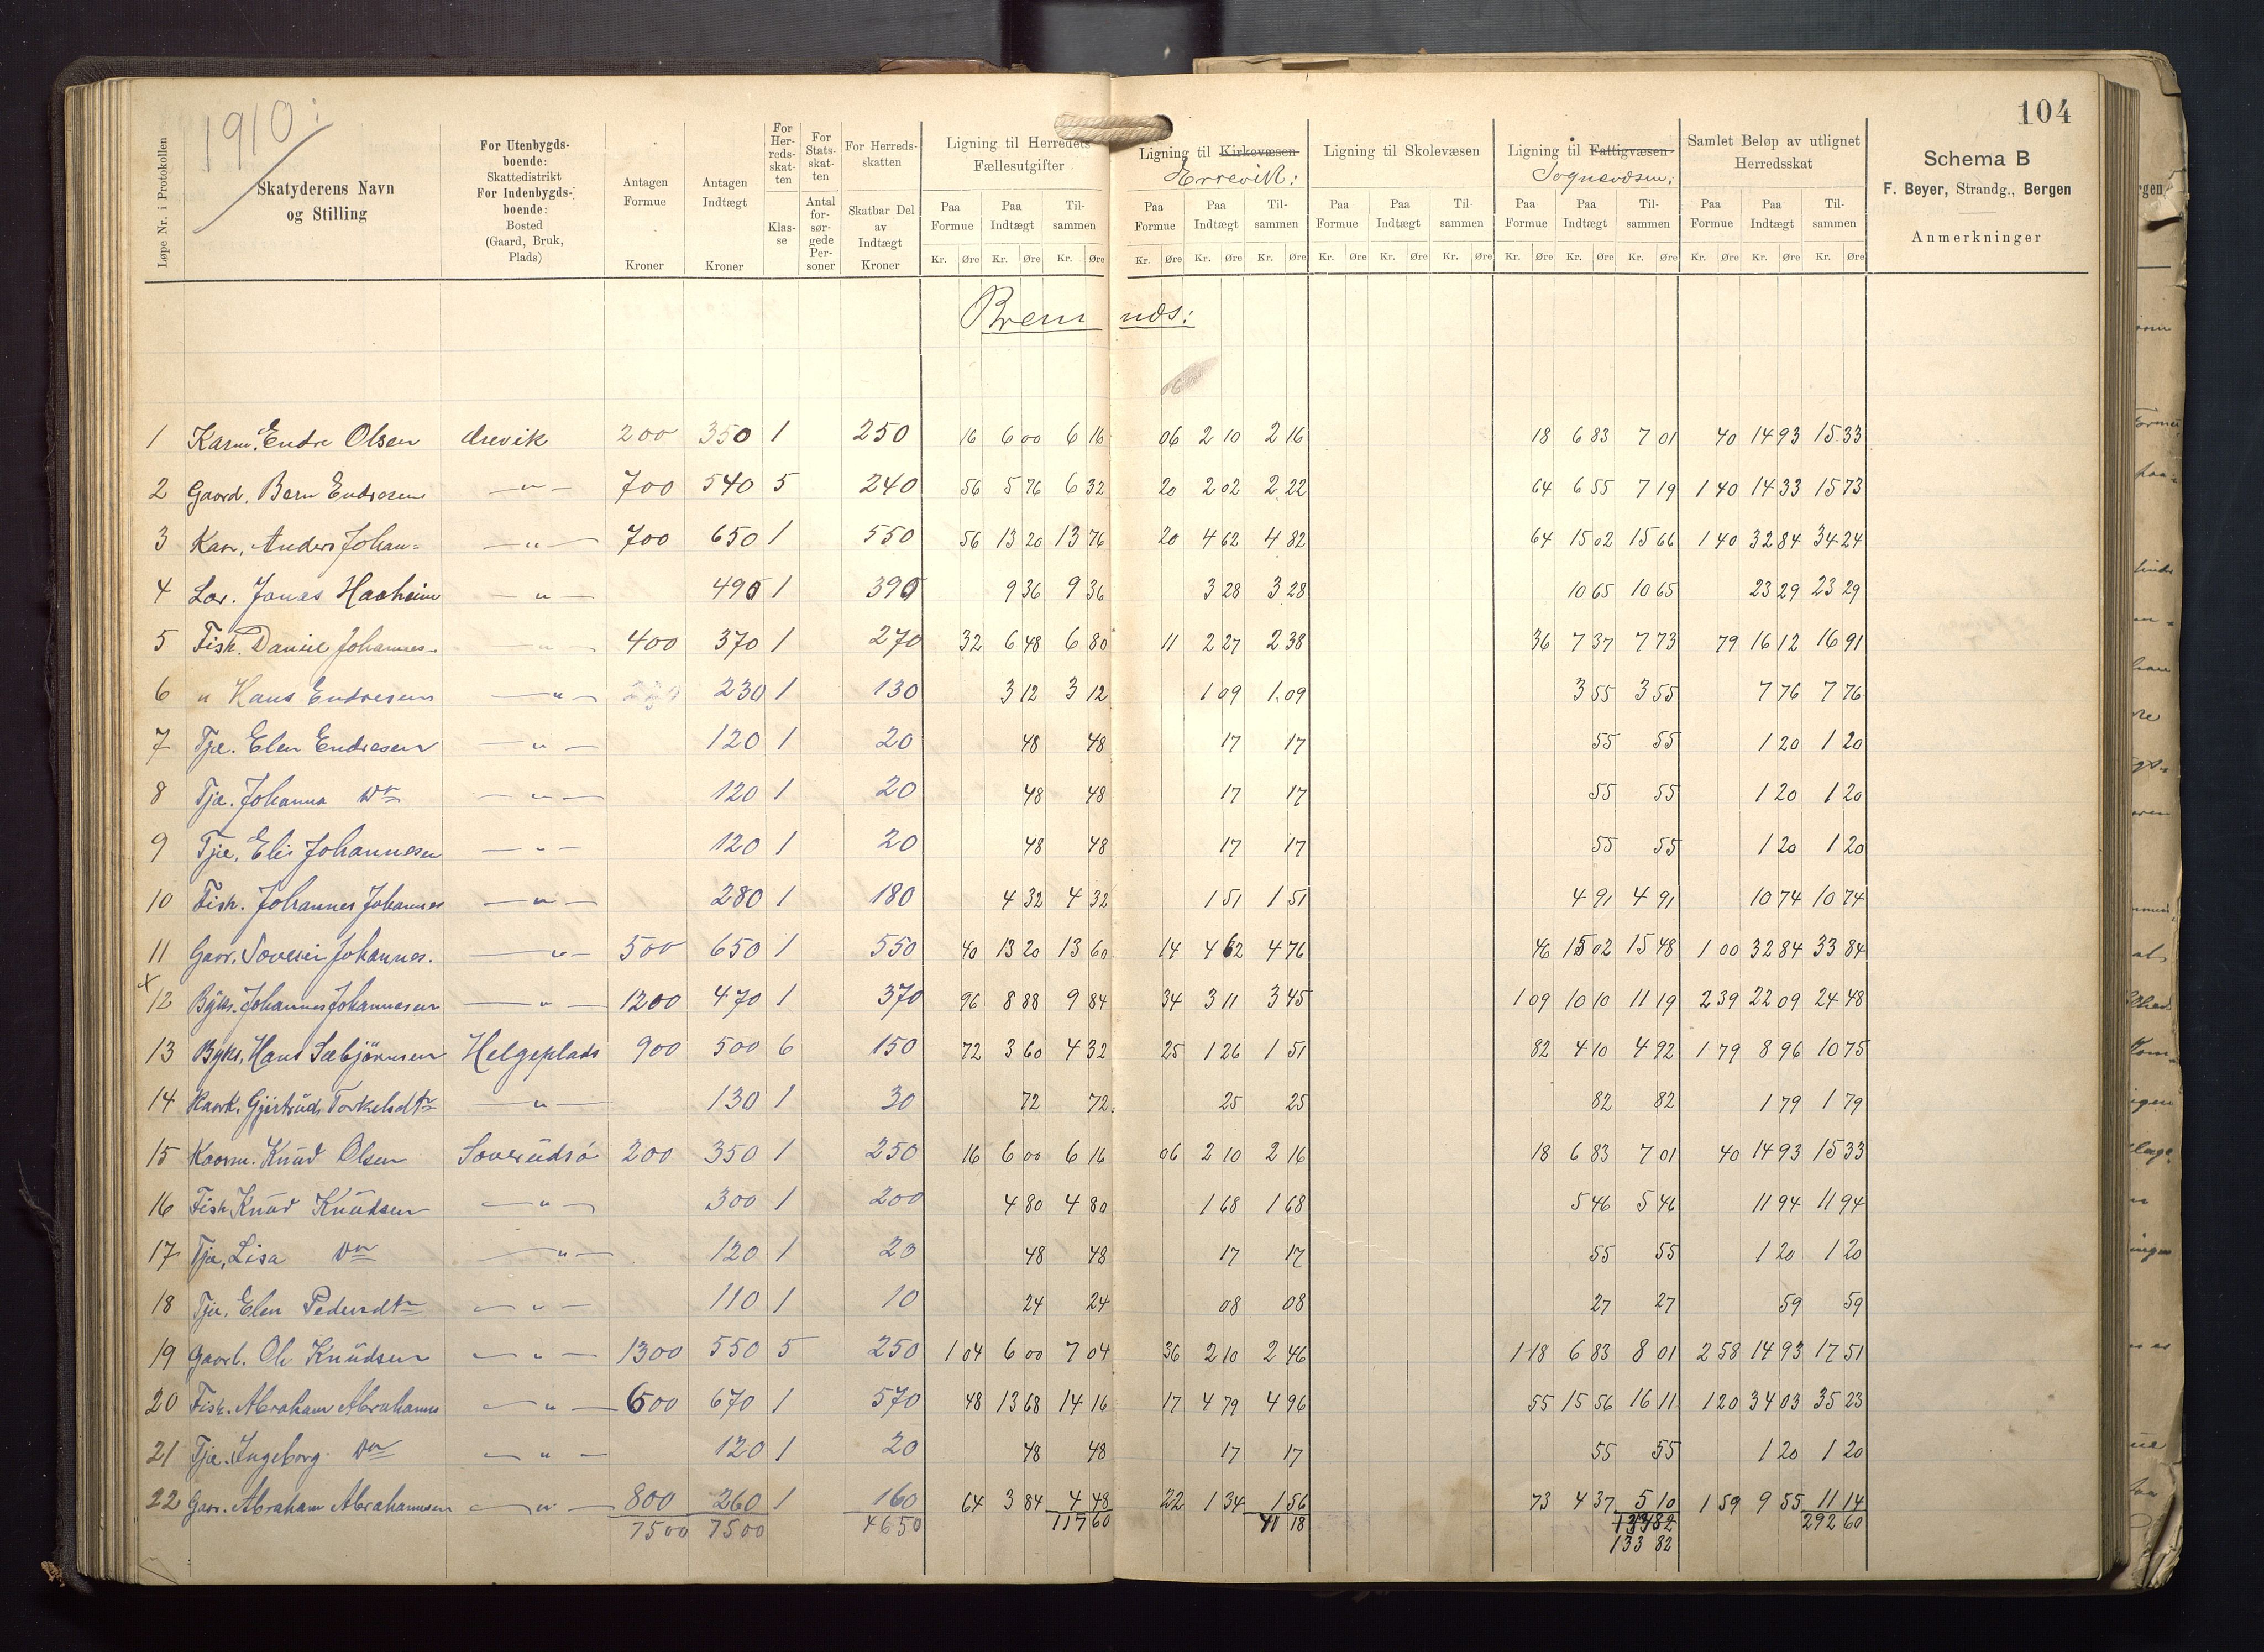 1910:
104
Løpe Nr. i Protokollen
Skatyderens Navn og Stilling
For Utenbygdsboende: Skattedistrikt For Indenbygdsboende: Bosted (Gaard, Bruk, Plads)
Antagen Formue Kroner
Antagen Indtægt Kroner
For Herredsskatten Klasse
For Statsskatten Antal forsørgede Personer
For Herredsskatten Skatbar Del av Indtægt Kroner
Ligning til Herredets Fællesutgifter
Ligning til Kirkevæsen
Errevik:
Ligning til Skolevæsen
Ligning til Fattigvæsen
Samlet Beløp av utlignet Herredsskat
Schema B
F. Beyer, Strandg., Bergen
Anmerkninger
Paa Formue Paa Indtægt Tilsammen Paa Formue Paa Indtægt Tilsammen Paa Formue Paa Indtægt Tilsammen Paa Formue Paa Indtægt Tilsammen Paa Formue Paa Indtægt Tilsammen
Kr. Øre Kr. Øre Kr. Øre Kr. Øre Kr. Øre Kr. Øre Kr. Øre Kr. Øre Kr. Øre Kr. Øre Kr. Øre Kr. Øre Kr. Øre Kr. Øre Kr. Øre
Bremnds:
1 Endre Olsen 200 350 1 250 16 6 00 6 16 06 2 10 2 16 18 6 83 7 01 40 14 93 15 33
2 Gaard. Bern Endresen —„— 700 540 5 240 56 5 76 6 32 20 2 02 2 22 64 6 55 7 19 1 40 14 33 15 73
3 Anders Johan= —„— 700 650 1 550 56 13 20 13 76 20 4 62 4 82 64 15 02 15 66 1 40 32 84 34 24
4 Lær. Jonas Haaheim —„— 490 1 390 9 36 9 36 3 28 3 28 10 65 10 65 23 29 23 29
5 Fisk. Daniel Johannes- —„— 400 370 1 270 32 6 48 6 80 11 2 27 2 38 36 7 37 7 73 79 16 12 16 91
6 „ Hans Endresen —„— 230 1 130 3 12 3 12 1 09 1 09 3 55 3 55 7 76 7 76
7 Tje. Elen Endresen —„— 120 1 20 48 48 17 17 55 55 1 20 1 20
8 Tje. Johanna Do —„— 120 1 20 48 48 17 17 55 55 1 20 1 20
9 Tje. Elis Johannesen —„— 120 1 20 48 48 17 17 55 55 1 20 1 20
10 Fisk. Johannes Johannes —„— 280 1 180 4 32 4 32 1 51 1 51 4 91 4 91 10 74 10 74
11 Johannes. —„— 500 650 1 550 40 13 20 13 60 14 4 62 4 76 46 15 02 15 48 1 00 32 84 33 84
x
12 Byks. Johannes Johannesen —„— 1200 470 1 370 96 8 88 9 84 34 3 11 3 45 1 09 10 10 11 19 2 39 22 09 24 48
13 Byks. Hans Sæbjörnsen Helgeplads 900 500 6 150 72 3 60 4 32 25 1 26 1 51 82 4 10 4 92 1 79 8 96 10 75
14 Gjertrud Torkelsdtr —„— 130 1 30 72 72 25 25 82 82 1 79 1 79
15 Knud Olsen 200 350 1 250 16 6 00 6 16 06 2 10 2 16 18 6 83 7 01 40 14 93 15 33
16 Fisk Knud Knudsen —„— 300 1 200 4 80 4 80 1 68 1 68 5 46 5 46 11 94 11 94
17 Tje. Lisa Do —„— 120 1 20 48 48 17 17 55 55 1 20 1 20
18 Tje. Elen Pedersdtr —„— 110 1 10 24 24 08 08 27 27 59 59
19 Ole Knudsen —„— 1300 550 5 250 1 04 6 00 7 04 36 2 10 2 46 1 18 6 83 8 01 2 58 14 93 17 51
20 Fisk. Abraham Abrahams —„— 600 670 1 570 48 13 68 14 16 17 4 79 4 96 55 15 56 16 11 1 20 34 03 35 23
21 Tje. Ingeborg Do —„— 120 1 20 48 48 17 17 55 55 1 20 1 20
22 Gaar. Abraham Abrahamsen —„— 800 260 1 160 64 3 84 4 48 22 1 34 1 56 73 4 37 5 10 1 59 9 55 11 14
7500 7500 4650 117 60 41 18 292 60
133 82